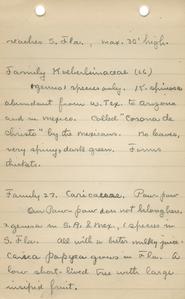 reaches S. Fla., max. 30' high.
Family Koeberliniaceae (26)
1 genus 1 species only. K. spinosa
abundant from W. Tex. to Arizona
and in Mexico. Called "Corona de
Christo" by the Mexicans. No leaves,
very spiny, dark green. Forms
thickets.
Family 27. Caricaceae. Paw-paw
Our Paw-paw does not belong here.
2 genera in S. A. & Mex., 1 species in
S. Fla. All with a bitter milky juice.
Carica papaya grows in Fla. A
low short-lived tree with large
insipid fruit.